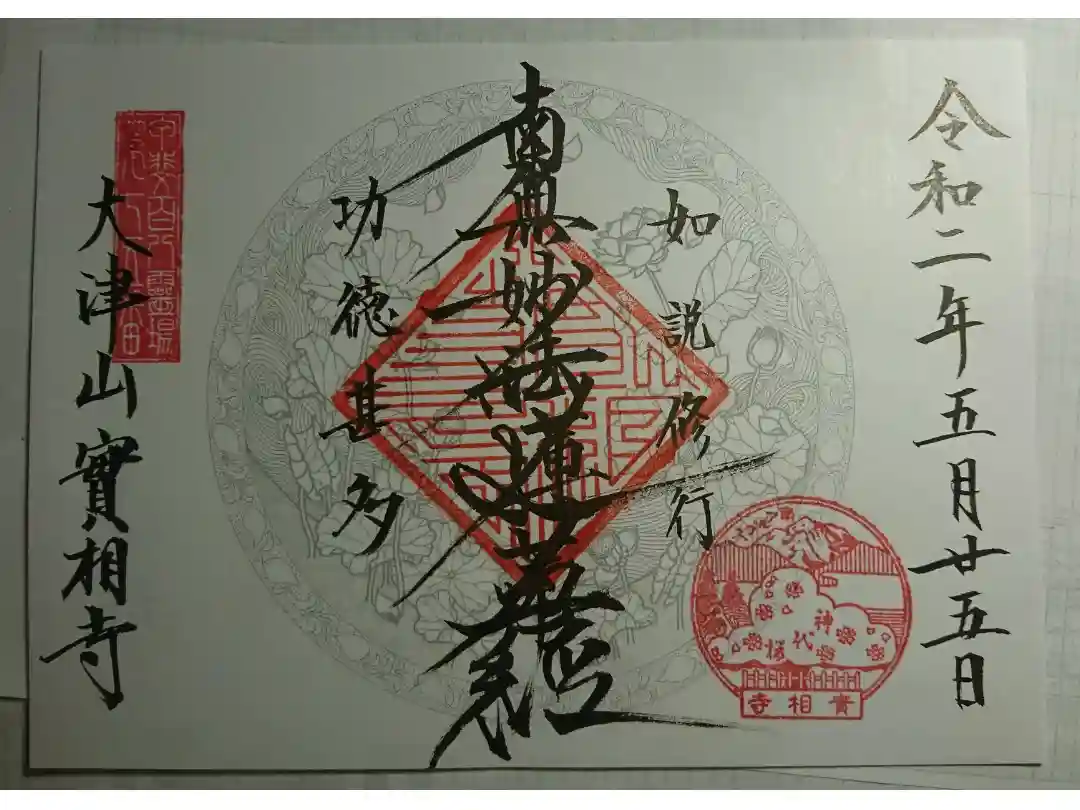 令和二年五月廿五日
如説修行
南無妙法蓮華經
功徳甚多
大津山實相寺
甲斐百八靈場
神代櫻
實相寺